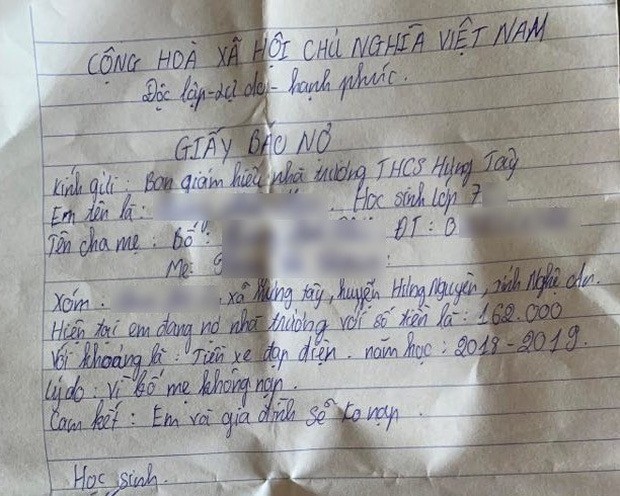 CỘNG HOÀ XÃ HỘI CHỦ NGHĨA VIỆT NAM
Độc lập - tự do - hạnh phúc.
GIẤY BÁO NỢ
Kính gửi : Ban giám hiệu nhà trường THCS Hưng Tây
Em tên là : Học sinh lớp 7
Tên cha mẹ : Bố : ĐT : 0
Mẹ :
Xóm : , xã Hưng tây, huyện Hưng Nguyên, tỉnh Nghệ An.
Hiện tại em đang nợ nhà trường với số tiền là : 162.000
Với khoảng là : Tiền xe đạp điện . năm học : 2018 - 2019.
Lý do : Vì bố mẹ không nạp .
Cam kết : Em và gia đình sẽ ko nạp .
Học sinh .